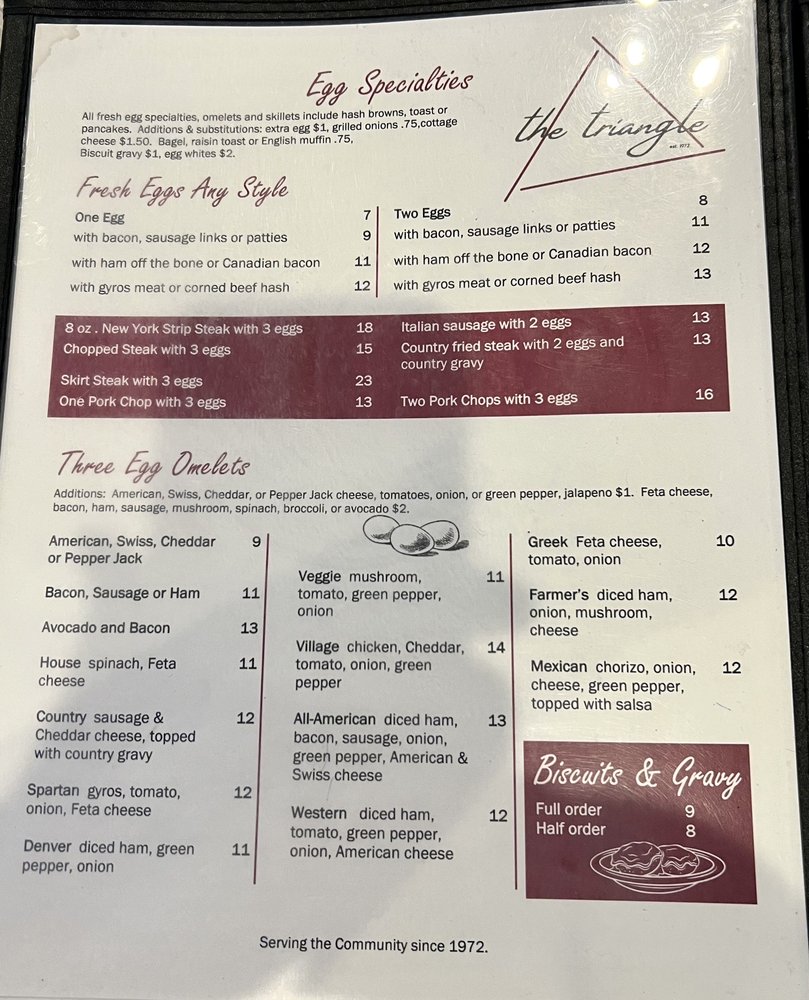 Egg Specialties
All fresh egg specialties, omelets and skillets include hash browns, toast or
pancakes. Additions & substitutions: extra egg $1, grilled onions .75,cottage
cheese $1.50. Bagel, raisin toast or English muffin .75,
Biscuit gravy $1, egg whites $2.
the triangle
est. 1972
Fresh Eggs Any Style
One Egg 7
with bacon, sausage links or patties 9
with ham off the bone or Canadian bacon 11
with gyros meat or corned beef hash 12
Two Eggs 8
with bacon, sausage links or patties 11
with ham off the bone or Canadian bacon 12
with gyros meat or corned beef hash 13
8 oz . New York Strip Steak with 3 eggs 18
Chopped Steak with 3 eggs 15
Skirt Steak with 3 eggs 23
One Pork Chop with 3 eggs 13
Italian sausage with 2 eggs 13
Country fried steak with 2 eggs and 13
country gravy
Two Pork Chops with 3 eggs 16
Three Egg Omelets
Additions: American, Swiss, Cheddar, or Pepper Jack cheese, tomatoes, onion, or green pepper, jalapeno $1. Feta cheese,
bacon, ham, sausage, mushroom, spinach, broccoli, or avocado $2.
American, Swiss, Cheddar 9
or Pepper Jack
Bacon, Sausage or Ham 11
Avocado and Bacon 13
House spinach, Feta 11
cheese
Country sausage & 12
Cheddar cheese, topped
with country gravy
Spartan gyros, tomato, 12
onion, Feta cheese
Denver diced ham, green 11
pepper, onion
Veggie mushroom, 11
tomato, green pepper,
onion
Village chicken, Cheddar, 14
tomato, onion, green
pepper
All-American diced ham, 13
bacon, sausage, onion,
green pepper, American &
Swiss cheese
Western diced ham, 12
tomato, green pepper,
onion, American cheese
Greek Feta cheese, 10
tomato, onion
Farmer's diced ham, 12
onion, mushroom,
cheese
Mexican chorizo, onion, 12
cheese, green pepper,
topped with salsa
Biscuits & Gravy
Full order 9
Half order 8
Serving the Community since 1972.